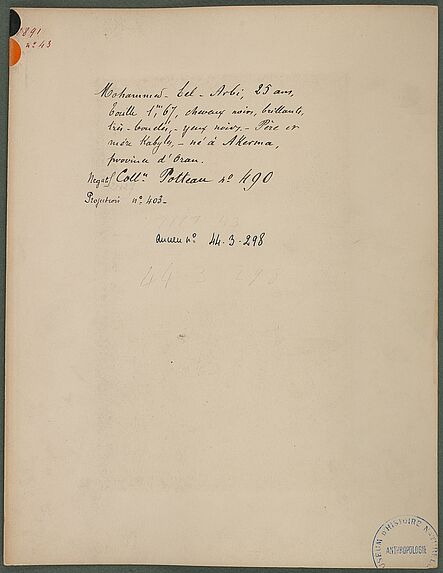 1891
nº 43
Mohammed-bel-Arbi, 25 ans,
taille 1,m67, cheveux noirs, brillants,
très-bouclés,- yeux noirs.- Père et
mère Kabyles, - né à Akerma,
province d'Oran.
Negatif Collon Potteau nº 490
Projection nº 403-
Ancien nº 44-3-298
44 3 298
MUSEUM D'HISTOIRE
ANTHROPOLOGIE